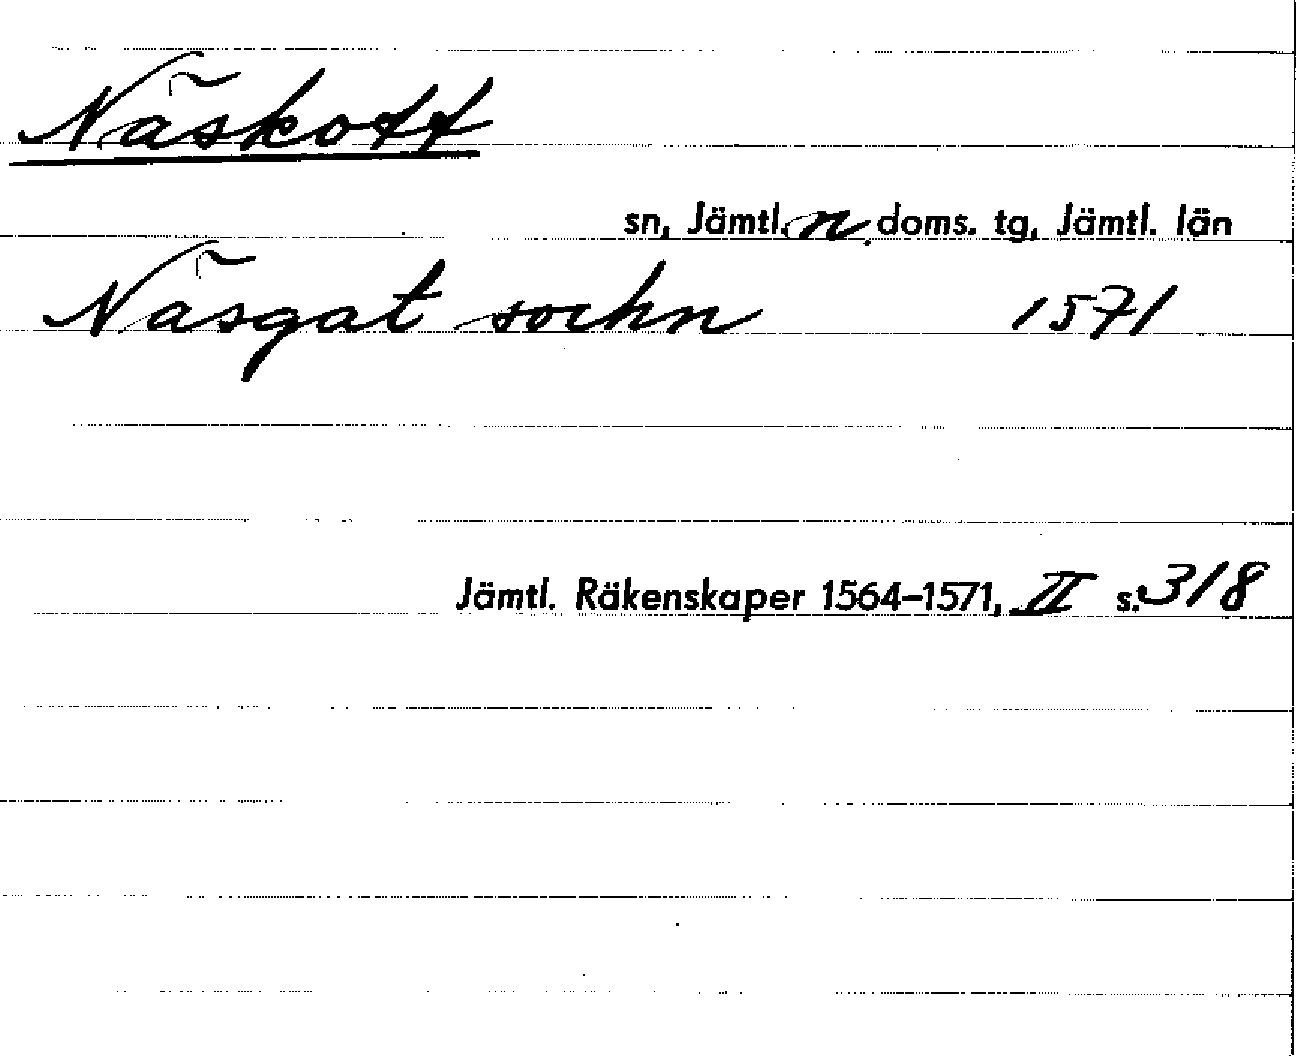 Näskott
sn, Jämtl. n doms. tg, Jämtl. län
Näsgat sockn 1571
Jämtl. Räkenskaper 1564-1571, II s. 318